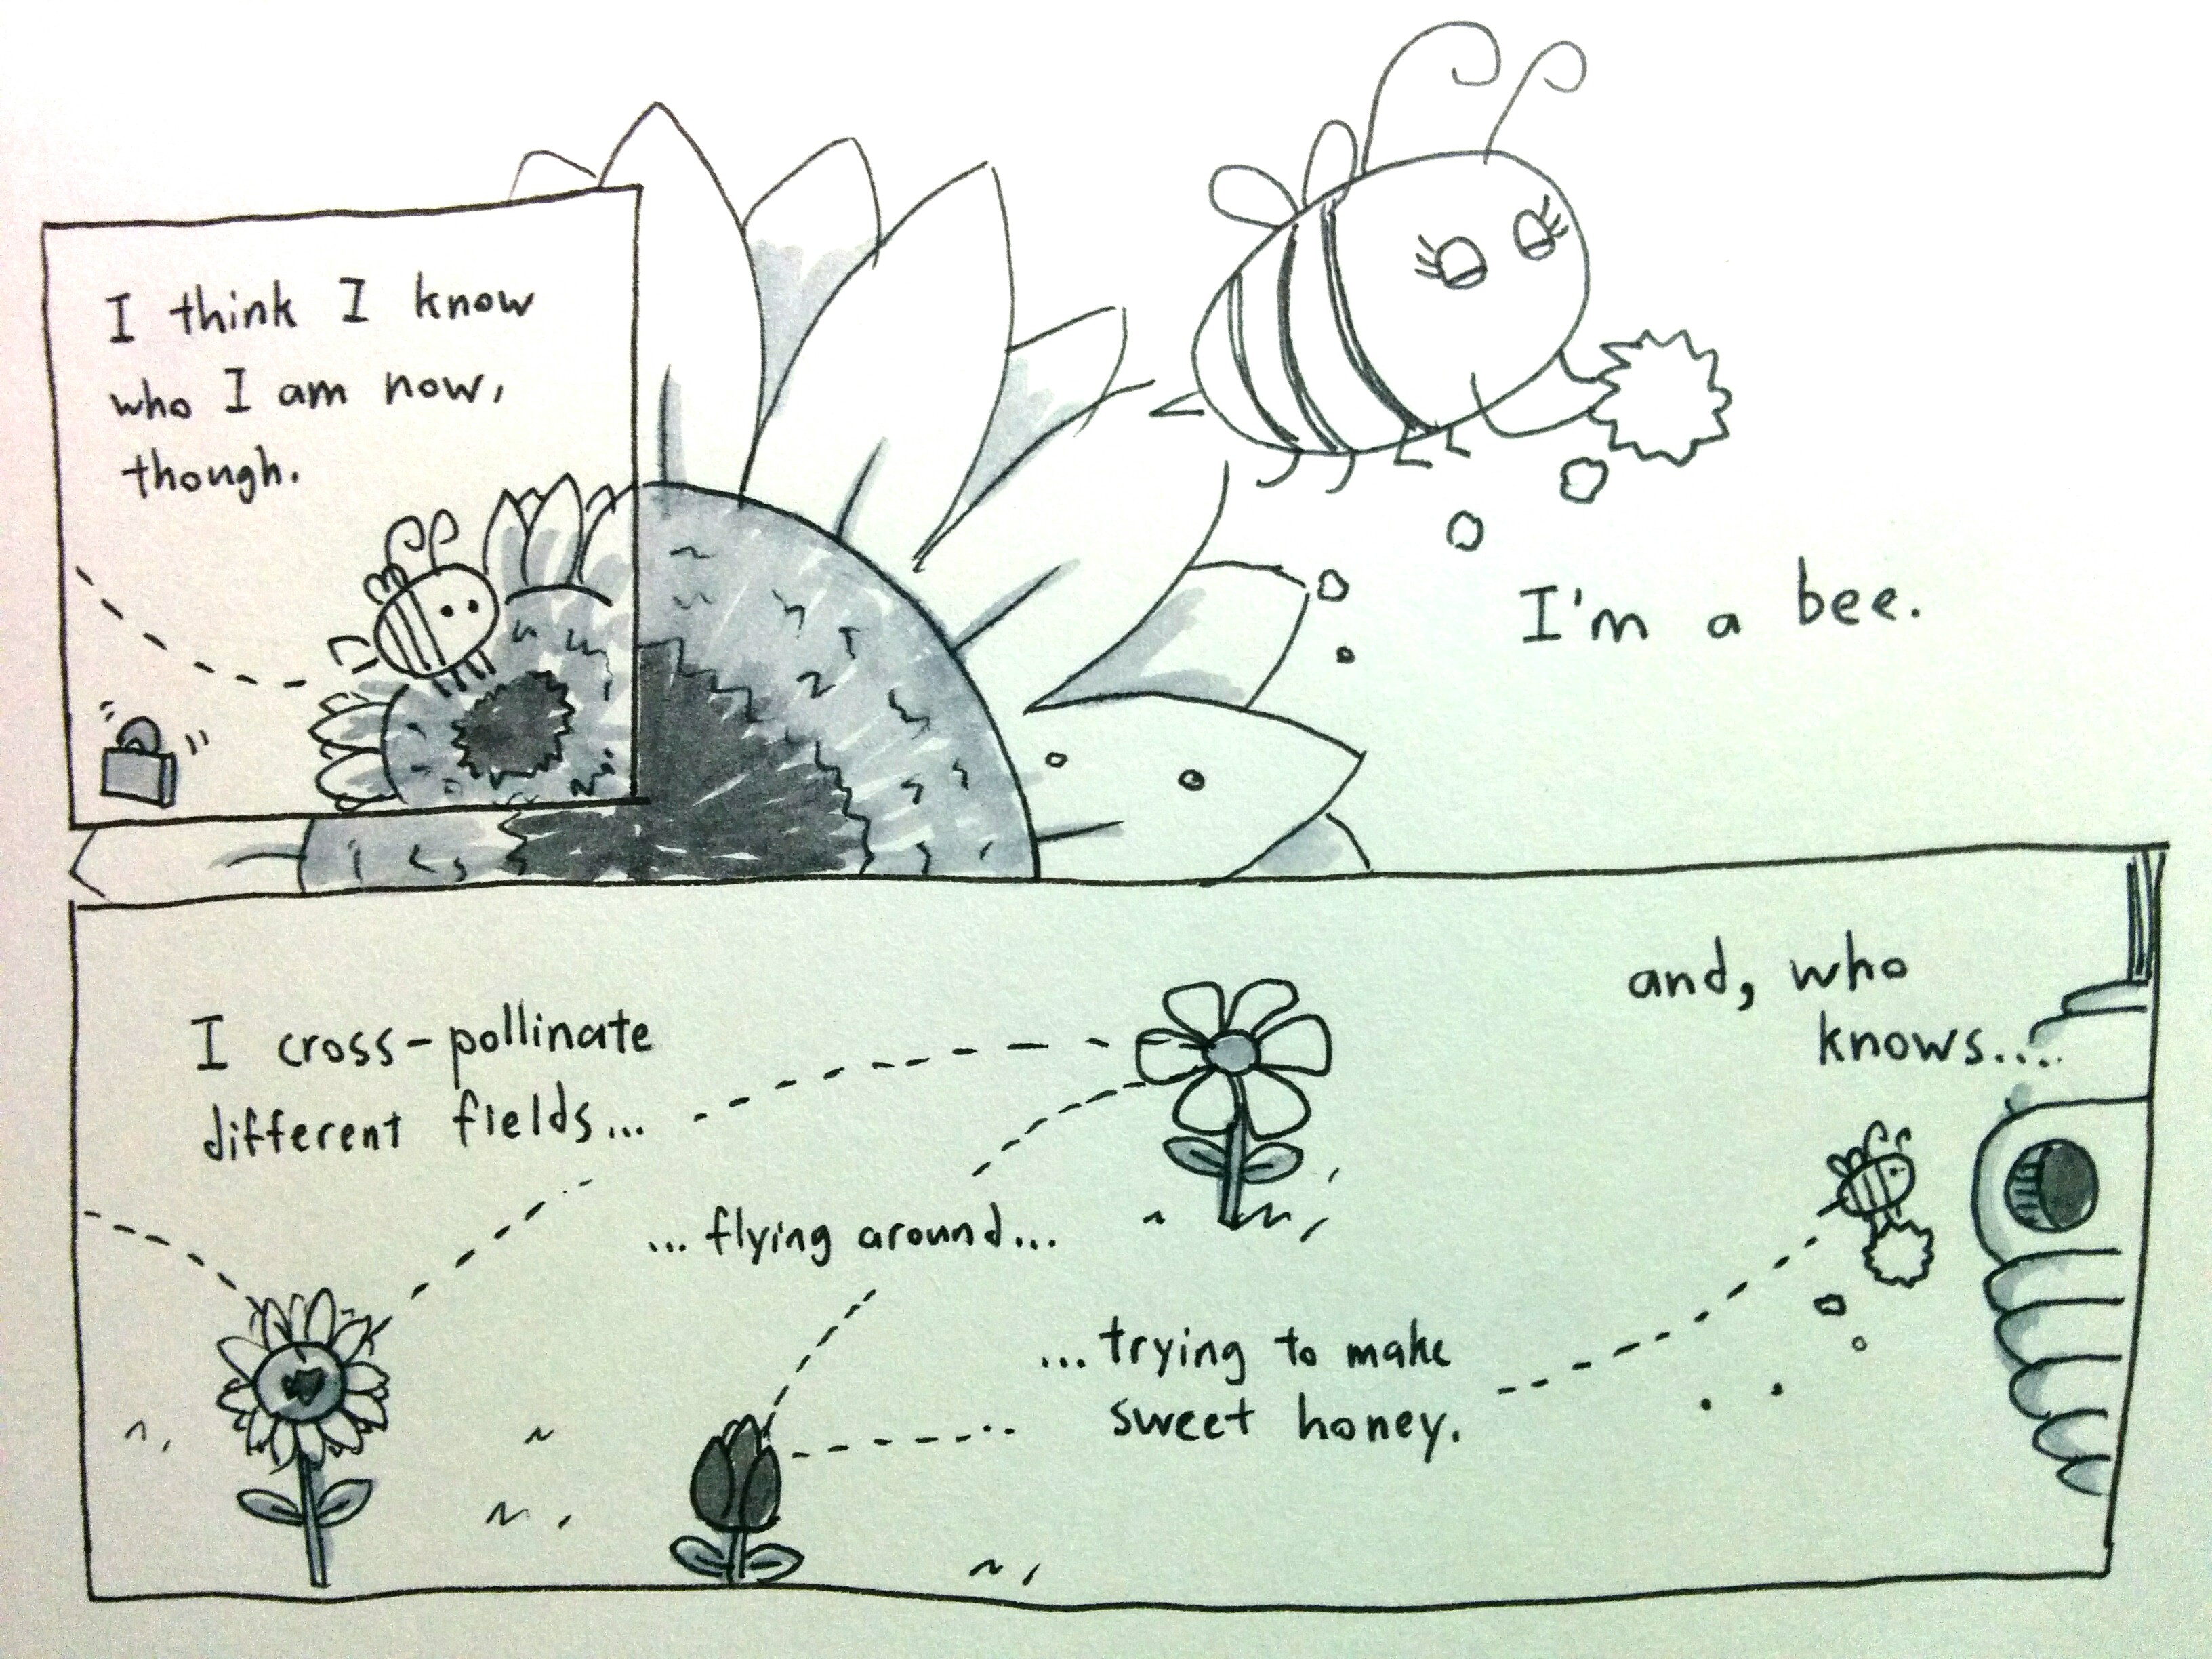 I think I know
who I am now,
though.
I'm a bee.
I cross-pollinate
different fields...
...flying around...
...trying to make
sweet honey.
and, who
knows....